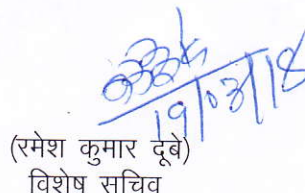 19/03/18
(रमेश कुमार दूबे)
विशेष सचिव